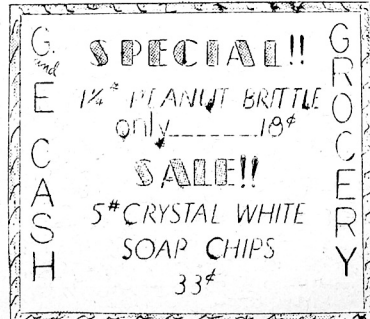 G. and E CASH
SPECIAL!!
1¼# PEANUT BRITTLE
only_______18¢
SALE!!
5# CRYSTAL WHITE
SOAP CHIPS
33¢
GROCERY